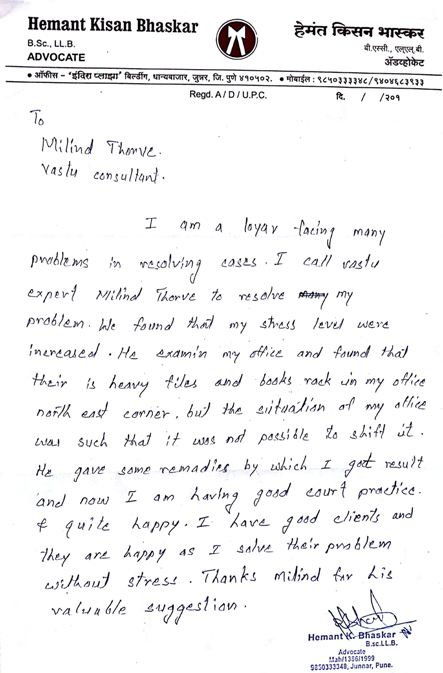 Hemant Kisan Bhaskar
B.Sc., LL.B.
ADVOCATE
हेमंत किसन भास्कर
बी.एस्सी., एल्एल्.बी.
ॲडव्होकेट
• ऑफीस – 'इंदिरा प्लाझा' बिल्डींग, धान्यबाजार, जुन्नर, जि. पुणे ४१०५०२. • मोबाईल : ९८५०३३३३४८/९४०४६८३९३३
Regd. A / D / U.P.C.
दि. / /२०१
To
Milind Thorve.
Vastu consultant.
I am a loyar facing many
problems in resolving cases. I call vastu
expert Milind Thorve to resolve my
problem. We found that my stress level were
increased. He examin my office and found that
their is heavy files and books rack in my office
north east corner. but the situation of my office
was such that it was not possible to shift it.
He gave some remadies by which I got result
and now I am having good court practice.
& quite happy. I have good clients and
they are happy as I solve their problem
without stress. Thanks milind for his
valuable suggestion.
Hemant K. Bhaskar
B.sc.LL.B.
Advocate
Mah/1356/1999
9850333348, Junnar, Pune.